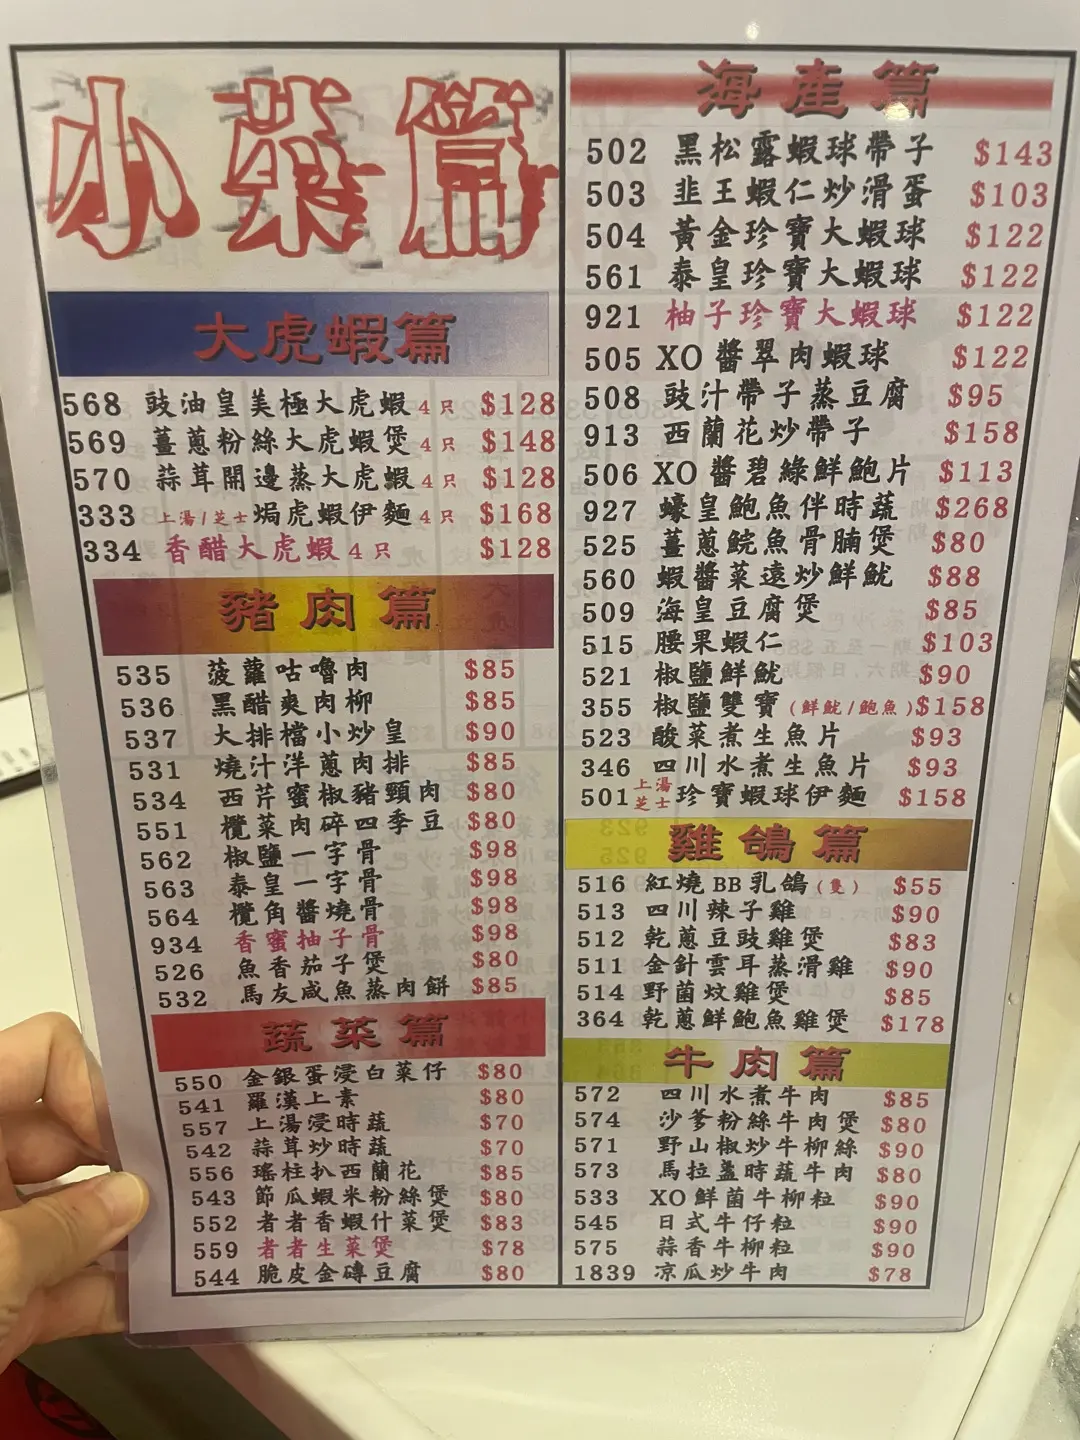 小菜篇
大虎蝦篇
568 豉油皇美極大虎蝦 4只 $128
569 薑蔥粉絲大虎蝦煲 4只 $148
570 蒜茸開邊蒸大虎蝦 4只 $128
333 上湯/芝士焗虎蝦伊麵 4只 $168
334 香醋大虎蝦 4只 $128
豬肉篇
535 菠蘿咕嚕肉 $85
536 黑醋爽肉柳 $85
537 大排檔小炒皇 $90
531 燒汁洋蔥肉排 $85
534 西芹蜜椒豬頸肉 $80
551 欖菜肉碎四季豆 $80
562 椒鹽一字骨 $98
563 泰皇一字骨 $98
564 欖角醬燒骨 $98
934 香蜜柚子骨 $98
526 魚香茄子煲 $80
532 馬友咸魚蒸肉餅 $85
蔬菜篇
550 金銀蛋浸白菜仔 $80
541 羅漢上素 $80
557 上湯浸時蔬 $70
542 蒜茸炒時蔬 $70
556 瑤柱扒西蘭花 $85
543 節瓜蝦米粉絲煲 $80
552 者者香蝦什菜煲 $83
559 者者生菜煲 $78
544 脆皮金磚豆腐 $80
海產篇
502 黑松露蝦球帶子 $143
503 韭王蝦仁炒滑蛋 $103
504 黃金珍寶大蝦球 $122
561 泰皇珍寶大蝦球 $122
921 柚子珍寶大蝦球 $122
505 XO醬翠肉蝦球 $122
508 豉汁帶子蒸豆腐 $95
913 西蘭花炒帶子 $158
506 XO醬碧綠鮮鮑片 $113
927 蠔皇鮑魚伴時蔬 $268
525 薑蔥鯇魚骨腩煲 $80
560 蝦醬菜遠炒鮮魷 $88
509 海皇豆腐煲 $85
515 腰果蝦仁 $103
521 椒鹽鮮魷 $90
355 椒鹽雙寶(鮮魷/鮑魚) $158
523 酸菜煮生魚片 $93
346 四川水煮生魚片 $93
501 上湯芝士珍寶蝦球伊麵 $158
雞鴿篇
516 紅燒BB乳鴿(隻) $55
513 四川辣子雞 $90
512 乾蔥豆豉雞煲 $83
511 金針雲耳蒸滑雞 $90
514 野菌炆雞煲 $85
364 乾蔥鮮鮑魚雞煲 $178
牛肉篇
572 四川水煮牛肉 $85
574 沙爹粉絲牛肉煲 $80
571 野山椒炒牛柳絲 $90
573 馬拉盞時蔬牛肉 $80
533 XO鮮菌牛柳粒 $90
545 日式牛仔粒 $90
575 蒜香牛柳粒 $90
1839 凉瓜炒牛肉 $78